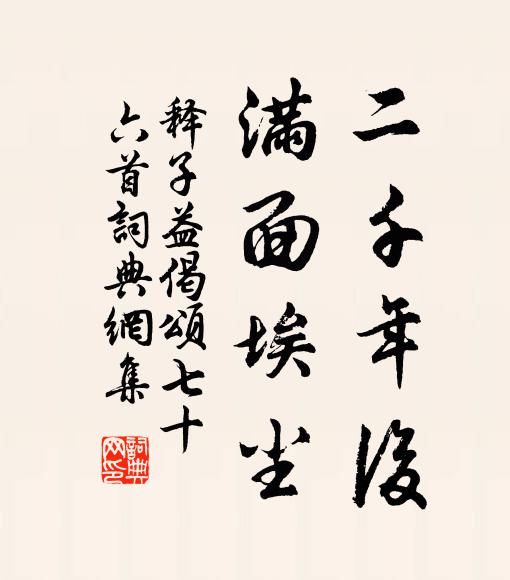 二千年後
滿面埃尘
释子益偈頌七十
六首詞典網集
詞典
网印